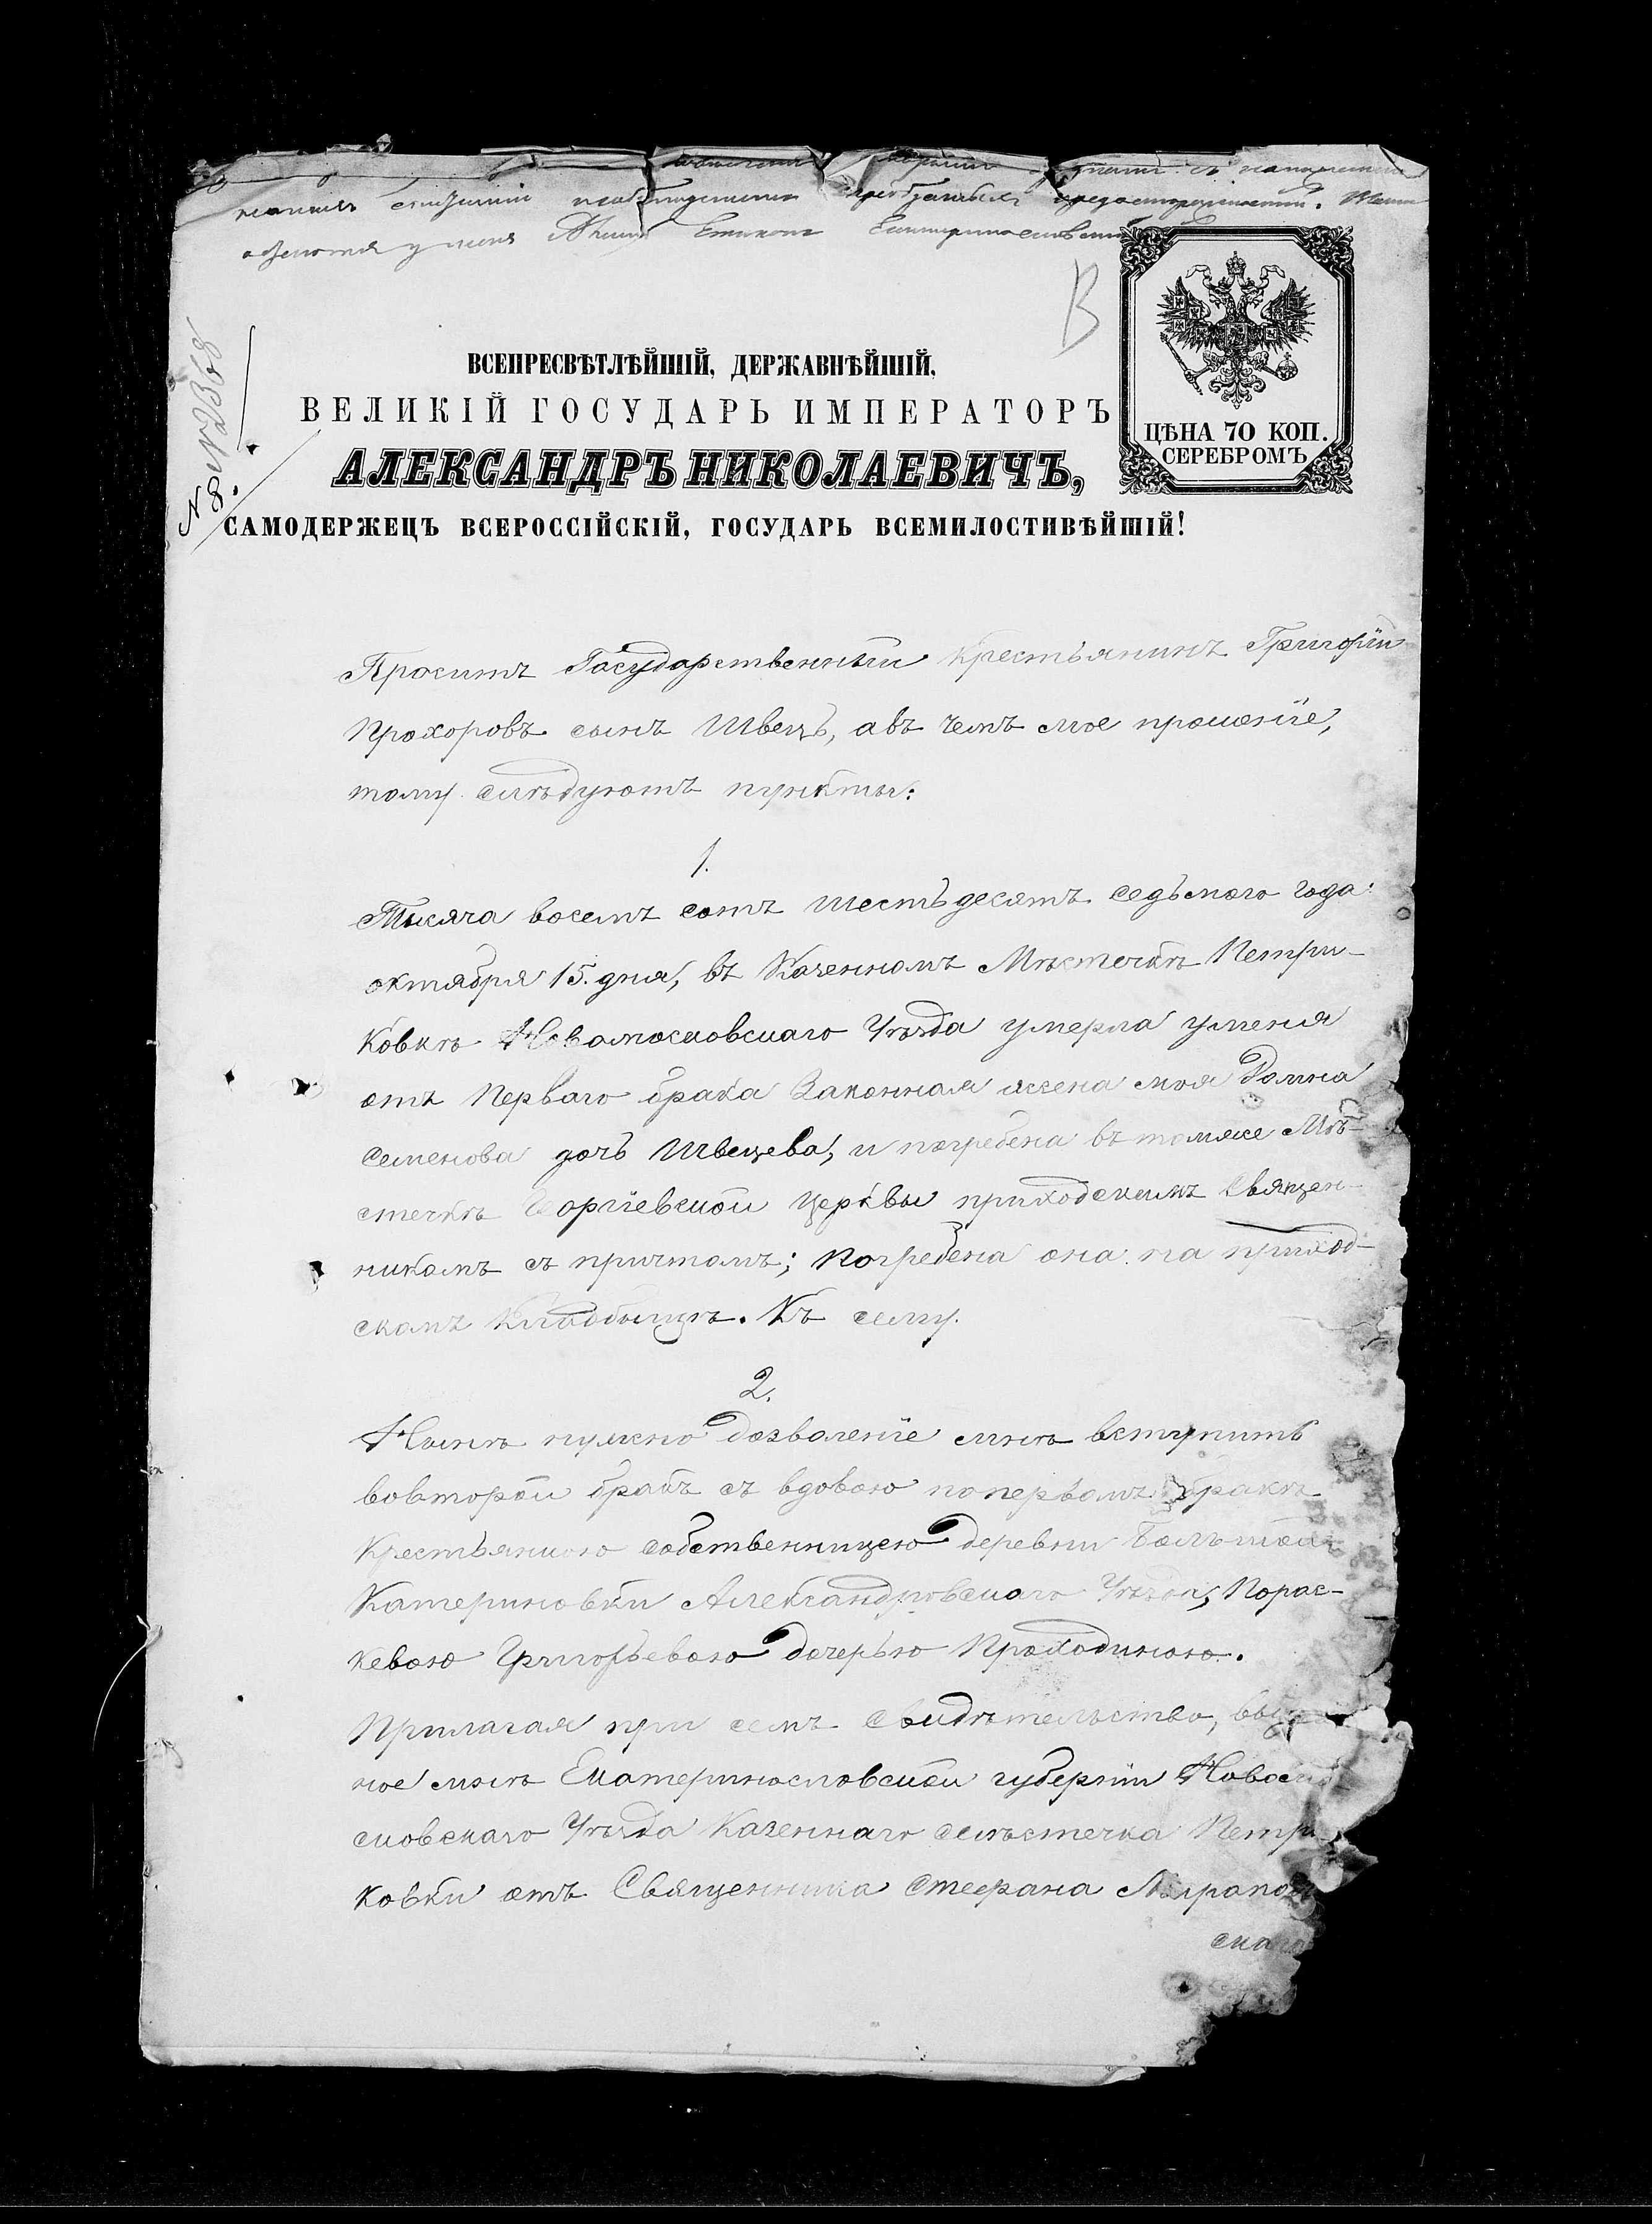 Епископъ
В
ЦѢНА 70 КОП.
СЕРЕБРОМЪ
ВСЕПРЕСВѢТЛѢЙШІЙ, ДЕРЖАВНѢЙШІЙ,
ВЕЛИКІЙ ГОСУДАРЬ ИМПЕРАТОРЪ
АЛЕКСАНДРЪ НИКОЛАЕВИЧЪ,
САМОДЕРЖЕЦЪ ВСЕРОССІЙСКІЙ, ГОСУДАРЬ ВСЕМИЛОСТИВѢЙШІЙ!
N 8.
Проситъ Государственный крестьянинъ Григорій
Прохоровъ сынъ Швецъ, авъ чемъ мое прошеніе,
тому слѣдуютъ пункты:
1.
Тысяча восемъ сотъ шестьдесятъ седьмого года
октября 15. дня, въ Казенномъ Мѣстечкѣ Петри-
ковкѣ Новомосковскаго Уѣзда умерла уменя
отъ Перваго брака Законная жена моя Домна
Семенова дочь Швецева, и погребена въ томже Мѣ-
стечкѣ Георгіевской церквы приходскимъ Священ-
никомъ съ причтомъ; Погребена она на приход-
скомъ Кладбыщѣ. Къ сему.
2.
Нынѣ нужно дозволеніе мнѣ вступить
вовторой бракъ съ вдовою поперьвомъ бракѣ
Крестьянкою собственницею деревни Большой
Катериновки Александровскаго Уѣзда, Порас-
кевою Григорьевою дочерью Проходиною.
Прилагая при семъ Свидѣтельство,
ное мнѣ Екатеринославской губерніи
сковскаго Уѣзда Казеннаго Мѣстечка Петри
ковки отъ Священника Стефана
скаго